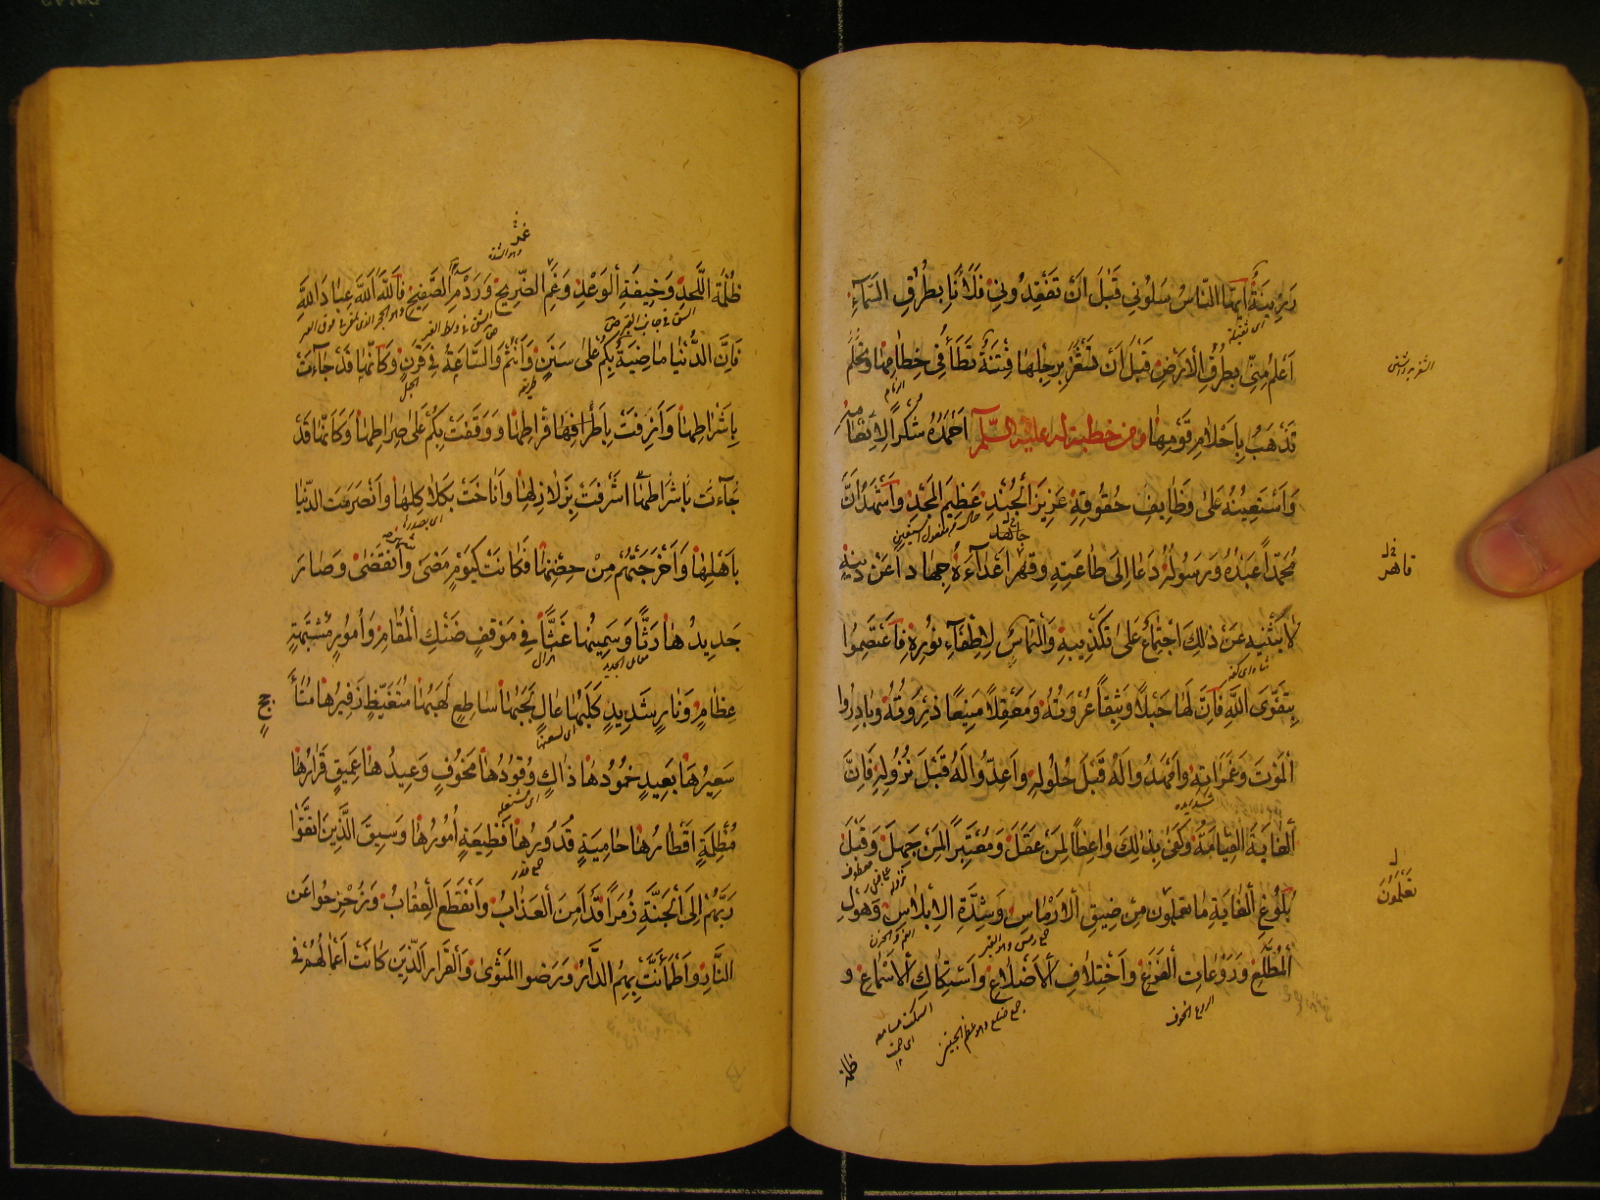 رَزِينَةٌ أَيُّهَا النَّاسُ سَلُونِي قَبْلَ أَنْ تَفْقِدُونِي فَلَأَنَا بِطُرُقِ السَّمَاءِ
أَعْلَمُ مِنِّي بِطُرُقِ الْأَرْضِ قَبْلَ أَنْ تَشْغَرَ بِرِجْلِهَا فِتْنَةٌ تَطَأُ فِي خِطَامِهَا وَ
تَذْهَبُ بِأَحْلَامِ قَوْمِهَا ومن خطبة له عليه السلام أَحْمَدُهُ شُكْراً لِإِنْعَامِهِ
وَأَسْتَعِينُهُ عَلَى وَظَائِفِ حُقُوقِهِ عَزِيزَ الْجُنْدِ عَظِيمَ الْمَجْدِ وَأَشْهَدُ أَنَّ
مُحَمَّداً عَبْدُهُ وَرَسُولُهُ دَعَا إِلَى طَاعَتِهِ وَقَهَرَ أَعْدَاءَهُ جِهَاداً عَنْ دِينِهِ
قاهر
لَا يَثْنِيهِ عَنْ ذَلِكَ اجْتِمَاعٌ عَلَى تَكْذِيبِهِ وَالْتِمَاسٌ لِإِطْفَاءِ نُورِهِ فَاعْتَصِمُوا
بِتَقْوَى اللَّهِ فَإِنَّ لَهَا حَبْلًا وَثِيقاً عُرْوَتُهُ وَمَعْقِلًا مَنِيعاً ذِرْوَتُهُ وَبَادِرُوا
الْمَوْتَ وَغَمَرَاتِهِ وَامْهَدُوا لَهُ قَبْلَ حُلُولِهِ وَأَعِدُّوا لَهُ قَبْلَ نُزُولِهِ فَإِنَّ
الْغَايَةَ الْقِيَامَةُ وَكَفَى بِذَلِكَ وَاعِظاً لِمَنْ عَقَلَ وَمُعْتَبَراً لِمَنْ جَهِلَ وَقَبْلَ
بُلُوغِ الْغَايَةِ مَا تعملون مِنْ ضِيقِ الْأَرْمَاسِ وَشِدَّةِ الْإِبْلَاسِ وَهَوْلِ
تَعْلَمُونَ
الْمُطَّلَعِ وَرَوْعَاتِ الْفَزَعِ وَاخْتِلَافِ الْأَضْلَاعِ وَاسْتِكَاكِ الْأَسْمَاعِ وَ
الروع الخوف
ظلمة
ظُلْمَةِ اللَّحْدِ وَخِيفَةِ الْوَعْدِ وَغَمِّ الضَّرِيحِ وَرَدْمِ الصَّفِيحِ فَاللَّهَ اللَّهَ عِبَادَ اللَّهِ
فَإِنَّ الدُّنْيَا مَاضِيَةٌ بِكُمْ عَلَى سَنَنٍ وَأَنْتُمْ وَالسَّاعَةُ فِي قَرَنٍ وَكَأَنَّهَا قَدْ جَاءَتْ
طريقة
بِأَشْرَاطِهَا وَأَزِفَتْ بِأَفْرَاطِهَا وَوَقَفَتْ بِكُمْ عَلَى صِرَاطِهَا وَكَأَنَّهَا قَدْ
جَاءَتْ بِأَشْرَاطِهَا أَشْرَفَتْ بِزَلَازِلِهَا وَأَنَاخَتْ بِكَلَاكِلِهَا وَانْصَرَمَتِ الدُّنْيَا
بِأَهْلِهَا وَأَخْرَجَتْهُمْ مِنْ حِضْنِهَا فَكَانَتْ كَيَوْمٍ مَضَى وَانْقَضَى وَصَارَ
جَدِيدُهَا رَثّاً وَسَمِينُهَا غَثّاً فِي مَوْقِفٍ ضَنْكِ الْمُقَامِ وَأُمُورٍ مُشْتَبِهَةٍ
عِظَامٍ وَنَارٍ شَدِيدٍ كَلَبُهَا عَالٍ لَجَبُهَا سَاطِعٍ لَهَبُهَا مُتَغَيِّظٍ زَفِيرُهَا
سَعِيرُهَا بَعِيدٍ خُمُودُهَا ذَاكٍ وُقُودُهَا مَخُوفٍ وَعِيدُهَا عَمِيقٍ قَرَارُهَا
مُظْلِمَةٍ أَقْطَارُهَا حَامِيَةٍ قُدُورُهَا فَظِيعَةٍ أُمُورُهَا وَسِيقَ الَّذِينَ اتَّقَوْا
رَبَّهُمْ إِلَى الْجَنَّةِ زُمَراً قَدْ أُمِنَ الْعَذَابُ وَانْقَطَعَ الْعِقَابُ وَزُحْزِحُوا عَنِ
النَّارِ وَاطْمَأَنَّتْ بِهِمُ الدَّارُ وَرَضُوا الْمَثْوَى وَالْقَرَارَ الَّذِينَ كَانَتْ أَعْمَالُهُمْ فِي